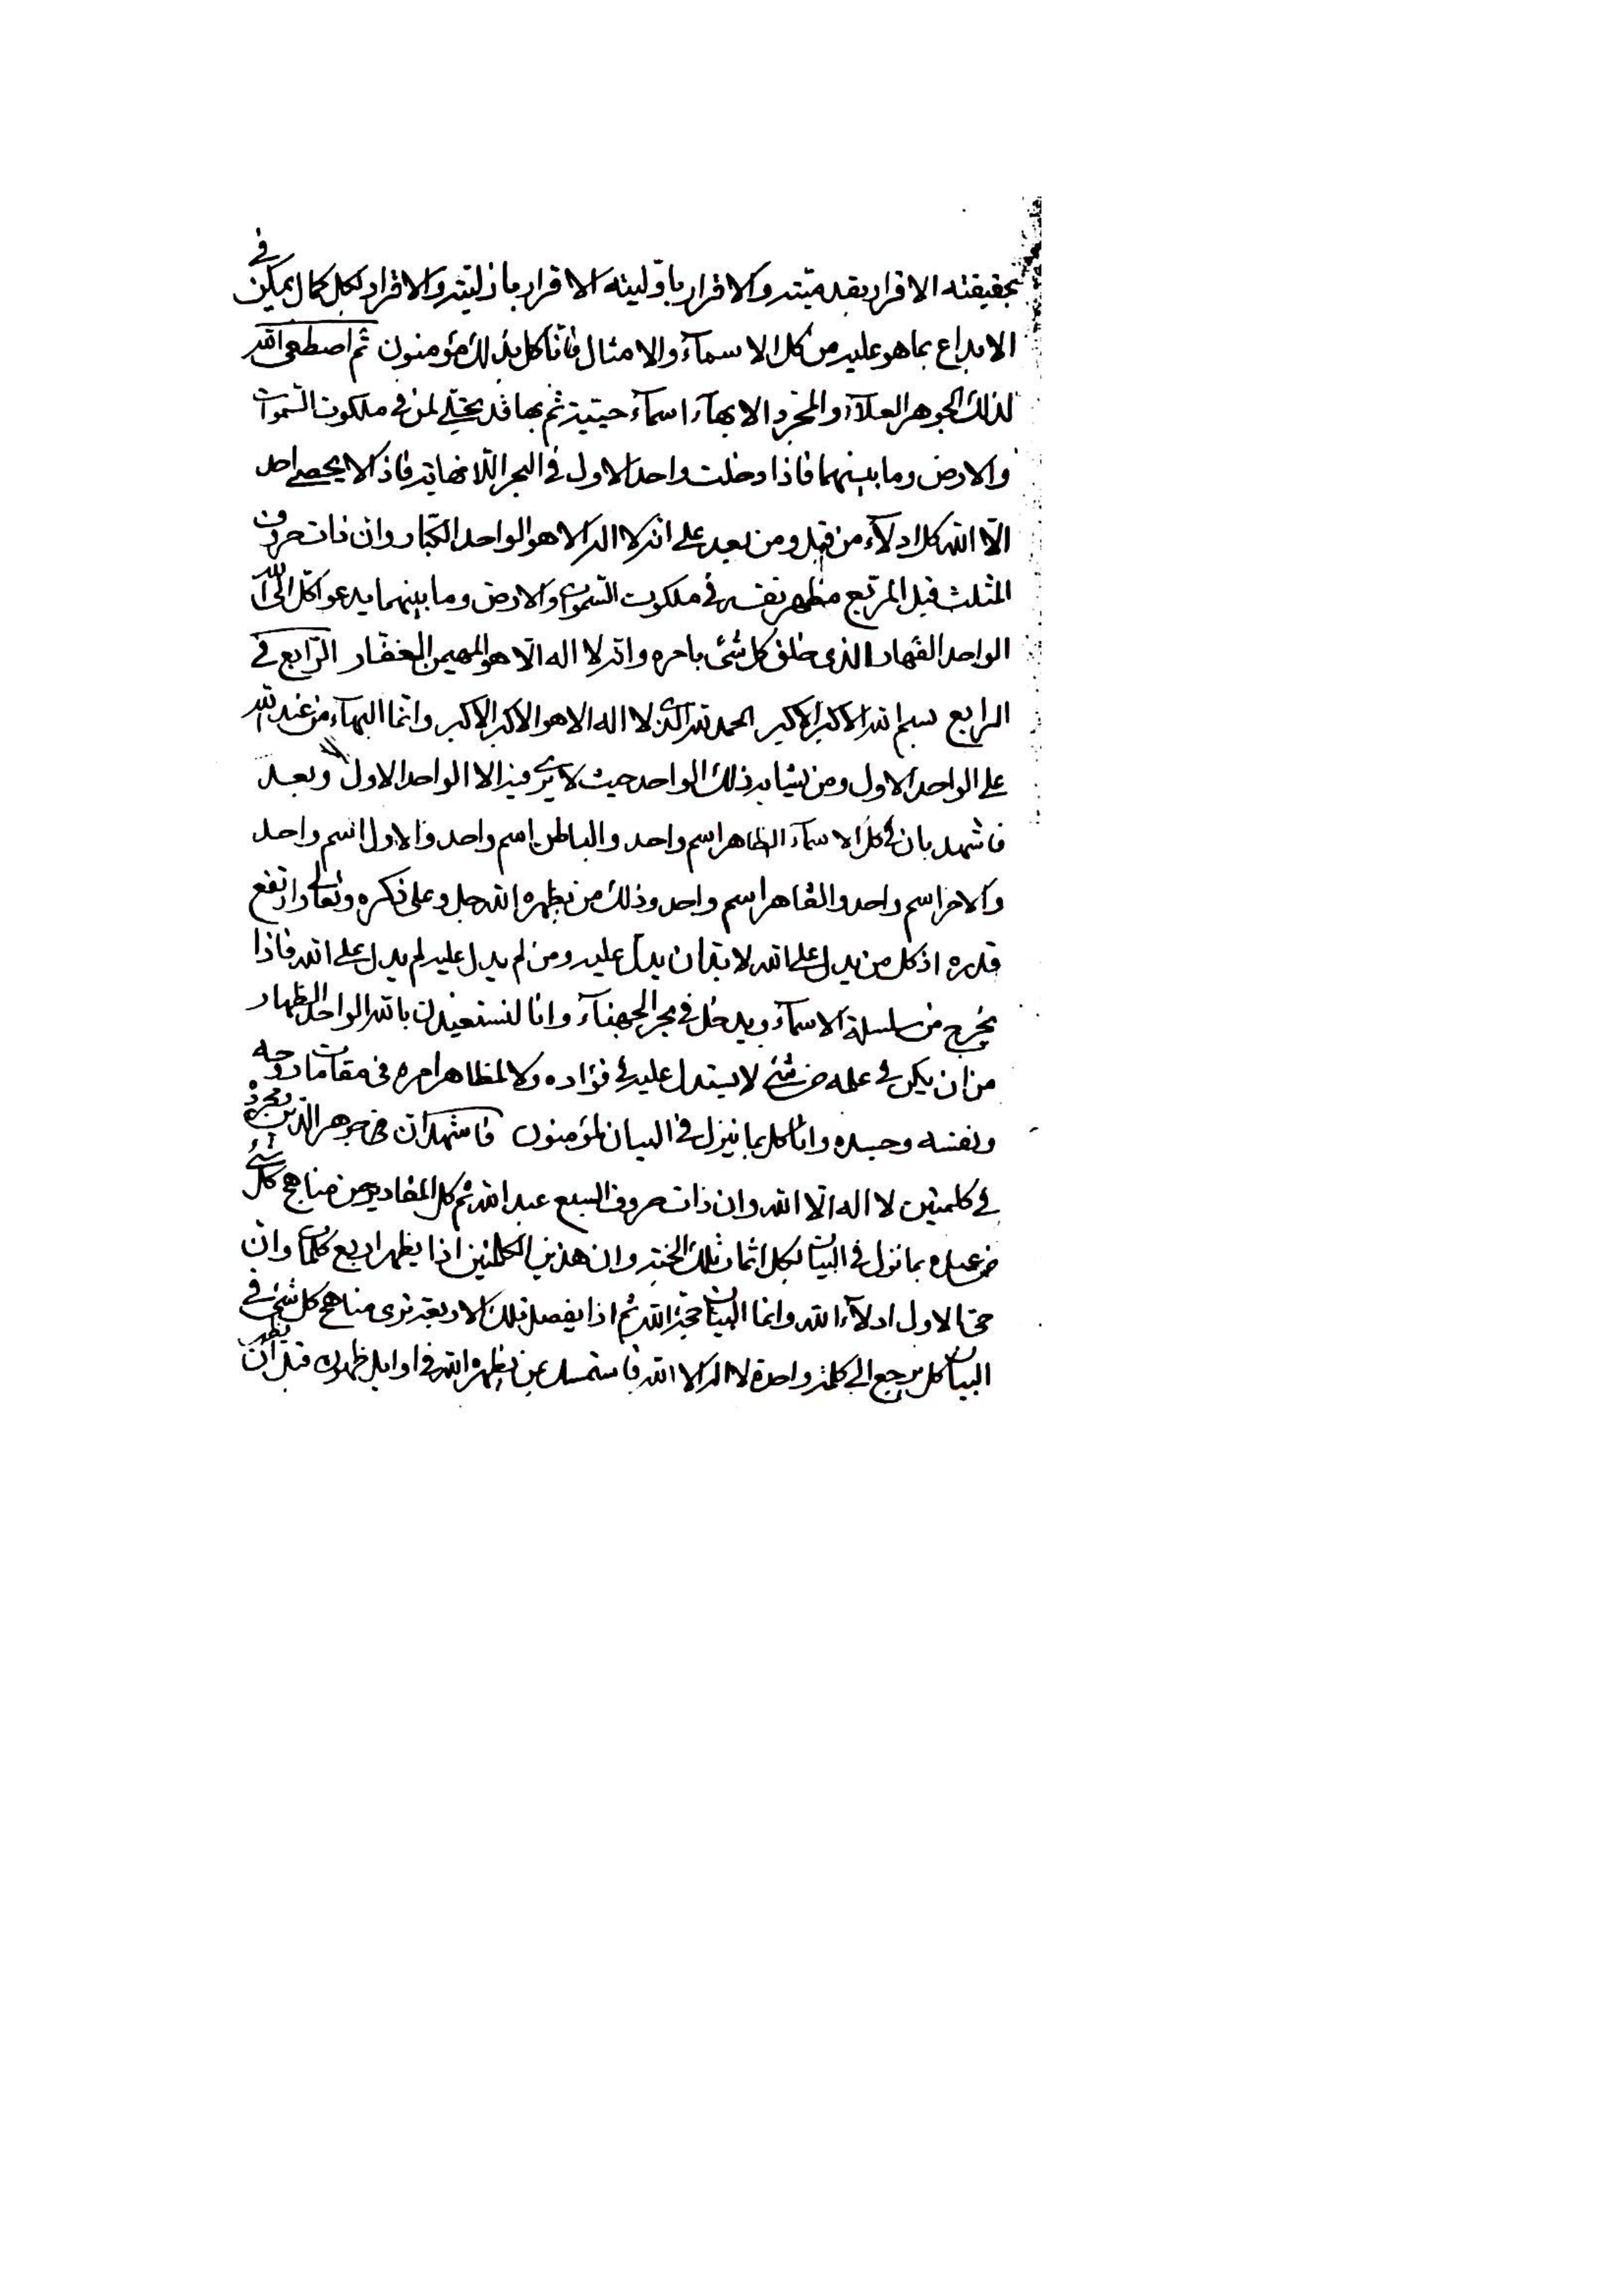 بحقيقته الاقرار بقدميته والاقرار باوليته الاقرار بازليته والاقرار لكل كمال يمكن في
الابداع بما هو عليه من كل الاسمآء والامثال فانا كل بذلك مؤمنون ثم اصطفى الله
لذلك الجوهر العلآء والمجرد الابهآء اسمآء حيتية ثم بها قد تجلى لمن في ملكوت السموات
والارض وما بينهما فاذا دخلت واحد الاول في البحر اللانهاية فاذا لا يحصى احد
الا الله كل ادلآء من قبل ومن بعد على انه لا اله الا هو الواحد الكبار وان ذات حروف
المثلث قبل المربع مظهر نفسه في ملكوت السموات والارض وما بينهما يدعوا كل الى الله
الواحد القهار الذى خلق كل شئ بامره وانه لا اله الا هو المهيمن الغفار الرابع في
الرابع بسم الله الاكبر الاكبر الحمد لله الذى لا اله الا هو الاكبر الاكبر وانما البهآء من عند الله
على الواحد الاول ومن يشابه ذلك الواحد حيث لا يرى فيه الا الواحد الاول وبعد
فاشهد بان في كل الاسمآء الظاهر اسم واحد والباطن اسم واحد والاول اسم واحد
والاخر اسم واحد والقاهر اسم واحد وذلك من يظهره الله جل وعلى ذكره وتعالى وارتفع
قدره اذ كل من يدل على الله لا بد ان يدل عليه ومن لم يدل عليه لم يدل على الله فاذا
يخرج من سلسلة الاسمآء ويدخل في بحر الجهنآء وانا لنستعيذن بالله الواحد الظهار
من ان يكن في علمه من شئ لا يستدل عليه في فؤاده ولا لمظاهر امره في مقامات روحه
ونفسه وجسده وانا كل بما نيزل في البيان لمؤمنون فاشهد ان في جوهر الدين ومجرده
في كلمتين لا اله الا الله وان ذات حروف السبع عبد الله ثم كل المقادير من مناهج كل شئ
من عباده بما نزل في البيان لكل اثمار تلك الجنة وان هذين الكلمتين اذا يظهر اربع كلمات وان
حى الاول ادلآء الله وانما البيان حجة الله ثم اذا يفصل تلك الاربعة ترى مناهج كل شئ في
البيان كل يرجع الى كلمة واحدة لا اله الا الله فاستمسك بمن يظهره الله في اوايل ظهوره قبل ان يظهر